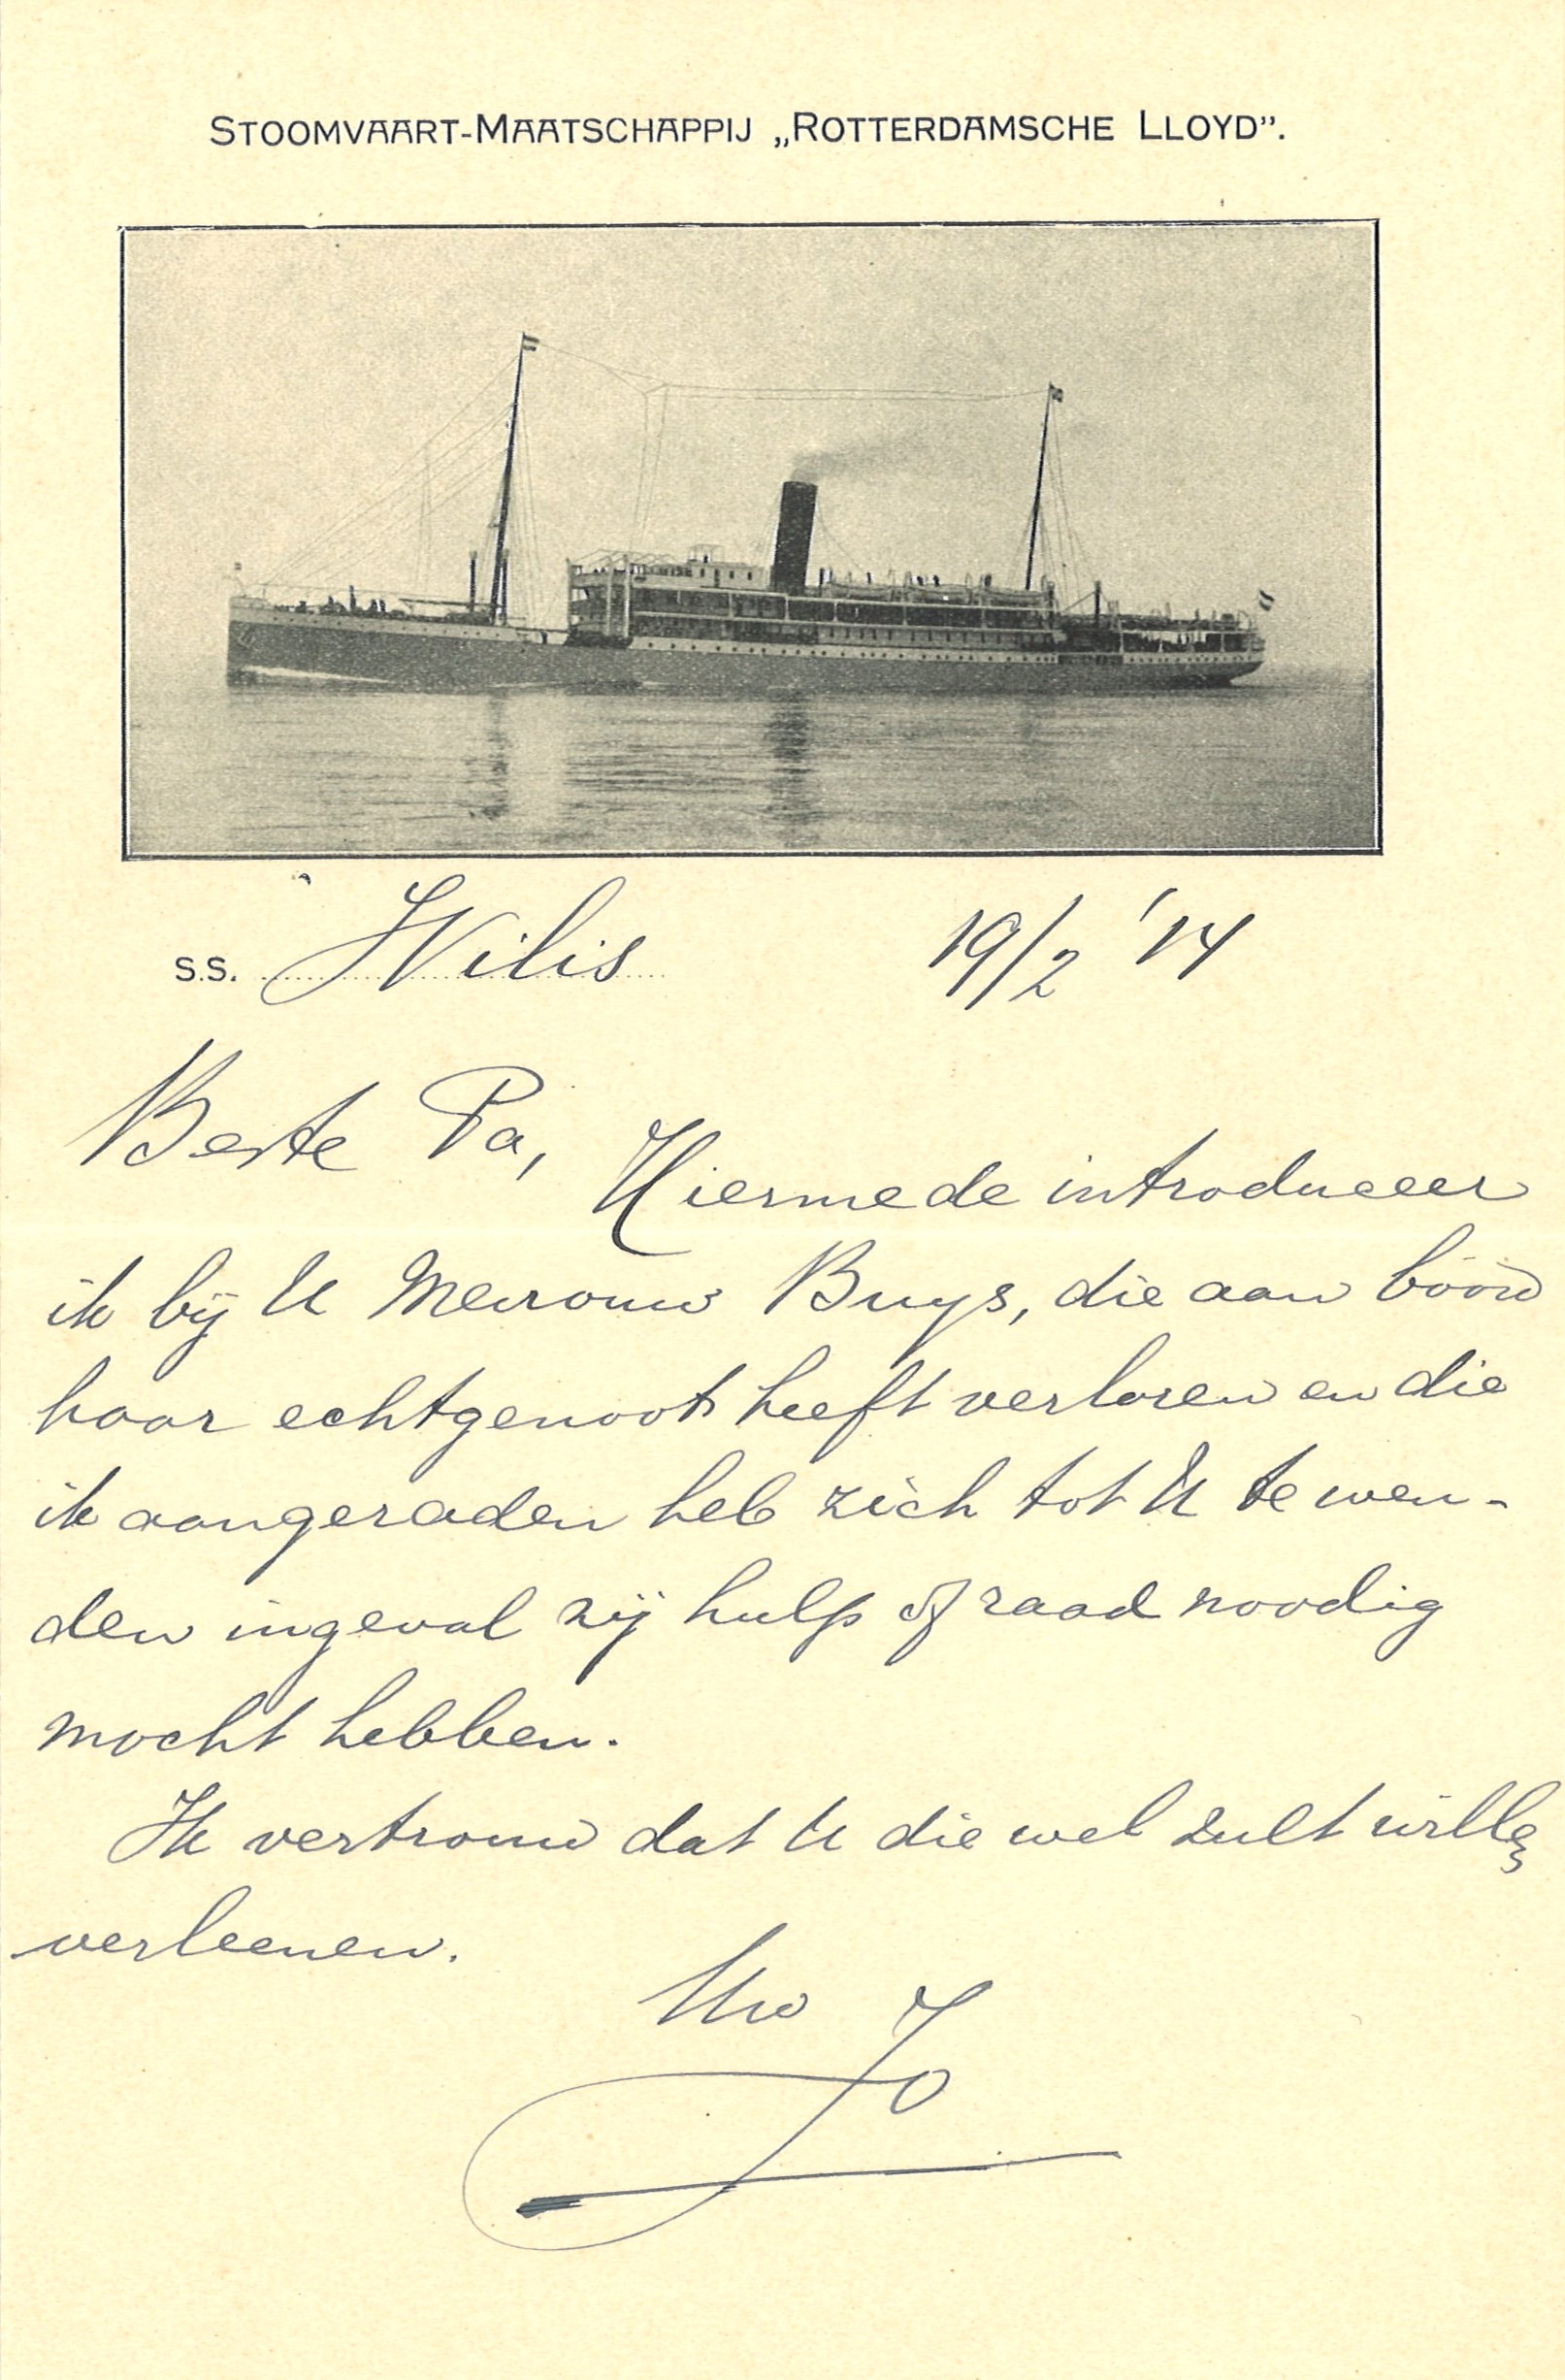 STOOMVAART-MAATSCHAPPIJ „ROTTERDAMSCHE LLOYD”.
S.S. Wilis 19/2 '14
Beste Pa,
Hiermede introduceer
ik bij U Mevrouw Buys, die aan boord
haar echtgenoot heeft verloren en die
ik aangeraden heb zich tot U te wen-
den ingeval zij hulp of raad noodig
mocht hebben.
Ik vertrouw dat U die wel zult willen
verleenen.
Uw Jo